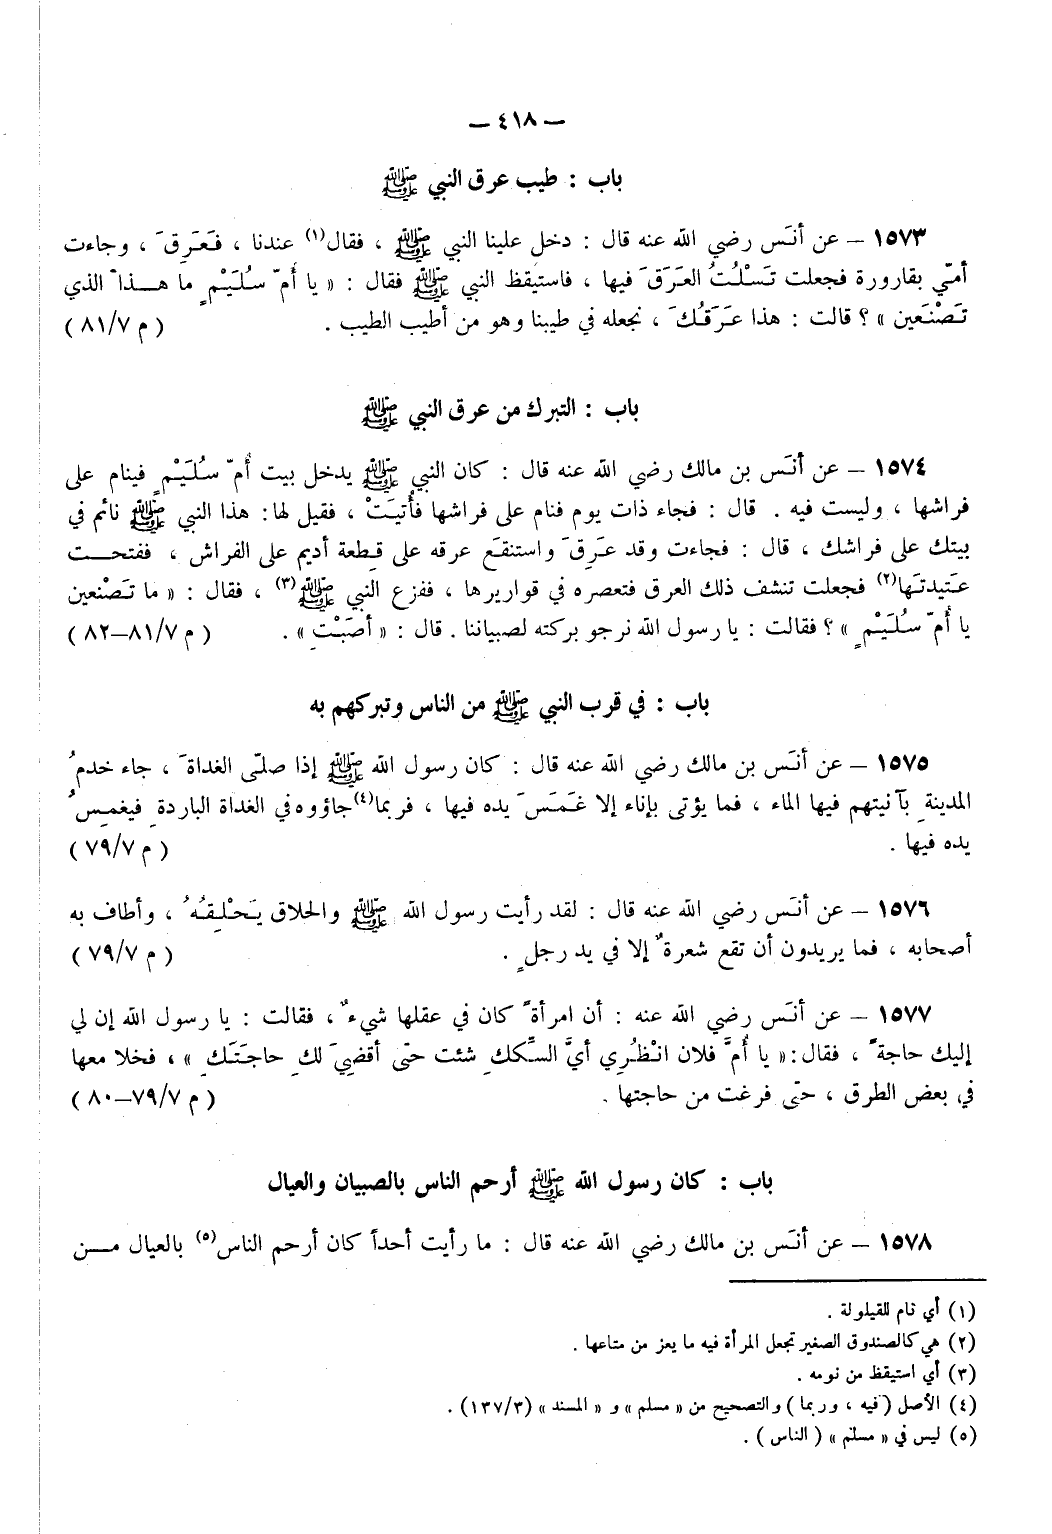 — ٤١٨ —
باب : طيب عرق النبي ﷺ
١٥٧٣ – عن أنَس رضي الله عنه قال : دخل علينا النبي ﷺ ، فقال(١) عندنا ، فَعَرِقَ ، وجاءت
أمّي بقارورة فجعلت تَسْلُتُ العَرَقَ فيها ، فاستيقظ النبي ﷺ فقال : « يا أُمّ سُلَيْمٍ ما هـــذا الذي
تَصْنَعين » ؟ قالت : هذا عَرَقُكَ ، نجعله في طيبنا وهو من أطيب الطيب . ( م ٨١/٧ )
باب : التبرك من عرق النبي ﷺ
١٥٧٤ – عن أنَس بن مالك رضي الله عنه قال : كان النبي ﷺ يدخل بيت أُمّ سُلَيْمٍ فينام على
فراشها ، وليست فيه . قال : فجاء ذات يوم فنام على فراشها فأُتِيَتْ ، فقيل لها : هذا النبي ﷺ نائم في
بيتك على فراشك ، قال : فجاءت وقد عَرِقَ واستنقَع عرقه على قِطعة أديم على الفراش ، ففتحــت
عَتيدتَها(٢) فجعلت تنشف ذلك العرق فتعصره في قواريرها ، ففزع النبي ﷺ(٣) ، فقال : « ما تَصْنعين
يا أُمّ سُلَيْمٍ » ؟ فقالت : يا رسول الله نرجو بركته لصبياننا . قال : « أصَبْتِ » . ( م ٨١/٧–٨٢ )
باب : في قرب النبي ﷺ من الناس وتبركهم به
١٥٧٥ – عن أنَس بن مالك رضي الله عنه قال : كان رسول الله ﷺ إذا صلّى الغداةَ ، جاء خدمُ
المدينةِ بآنيتهم فيها الماء ، فما يؤتى بإناء إلا غَمَسَ يده فيها ، فربما(٤) جاؤوه في الغداة الباردةِ فيغمِسُ
يده فيها . ( م ٧٩/٧ )
١٥٧٦ – عن أنَس رضي الله عنه قال : لقد رأيت رسول الله ﷺ والحلاق يَحْلِقُهُ ، وأطاف به
أصحابه ، فما يريدون أن تقع شعرةٌ إلا في يد رجلٍ . ( م ٧٩/٧ )
١٥٧٧ – عن أنَس رضي الله عنه : أن امرأةً كان في عقلها شيءٌ ، فقالت : يا رسول الله إن لي
إليك حاجةً ، فقال : « يا أُمَّ فلان انْظُرِي أيَّ السِّككِ شئت حتّى أقضيَ لكِ حاجَتَكِ » ، فخلا معها
في بعض الطرق ، حتّى فرغت من حاجتها . ( م ٧٩/٧–٨٠ )
باب : كان رسول الله ﷺ أرحم الناس بالصبيان والعيال
١٥٧٨ – عن أنَس بن مالك رضي الله عنه قال : ما رأيت أحداً كان أرحم الناس(٥) بالعيال مــن
(١) أي نام للقيلولة .
(٢) هي كالصندوق الصغير تجعل المرأة فيه ما يعز من متاعها .
(٣) أي استيقظ من نومه .
(٤) الأصل (فيه ، وربما) والتصحيح من « مسلم » و « المسند » (١٣٧/٣) .
(٥) ليس في « مسلم » ( الناس ) .